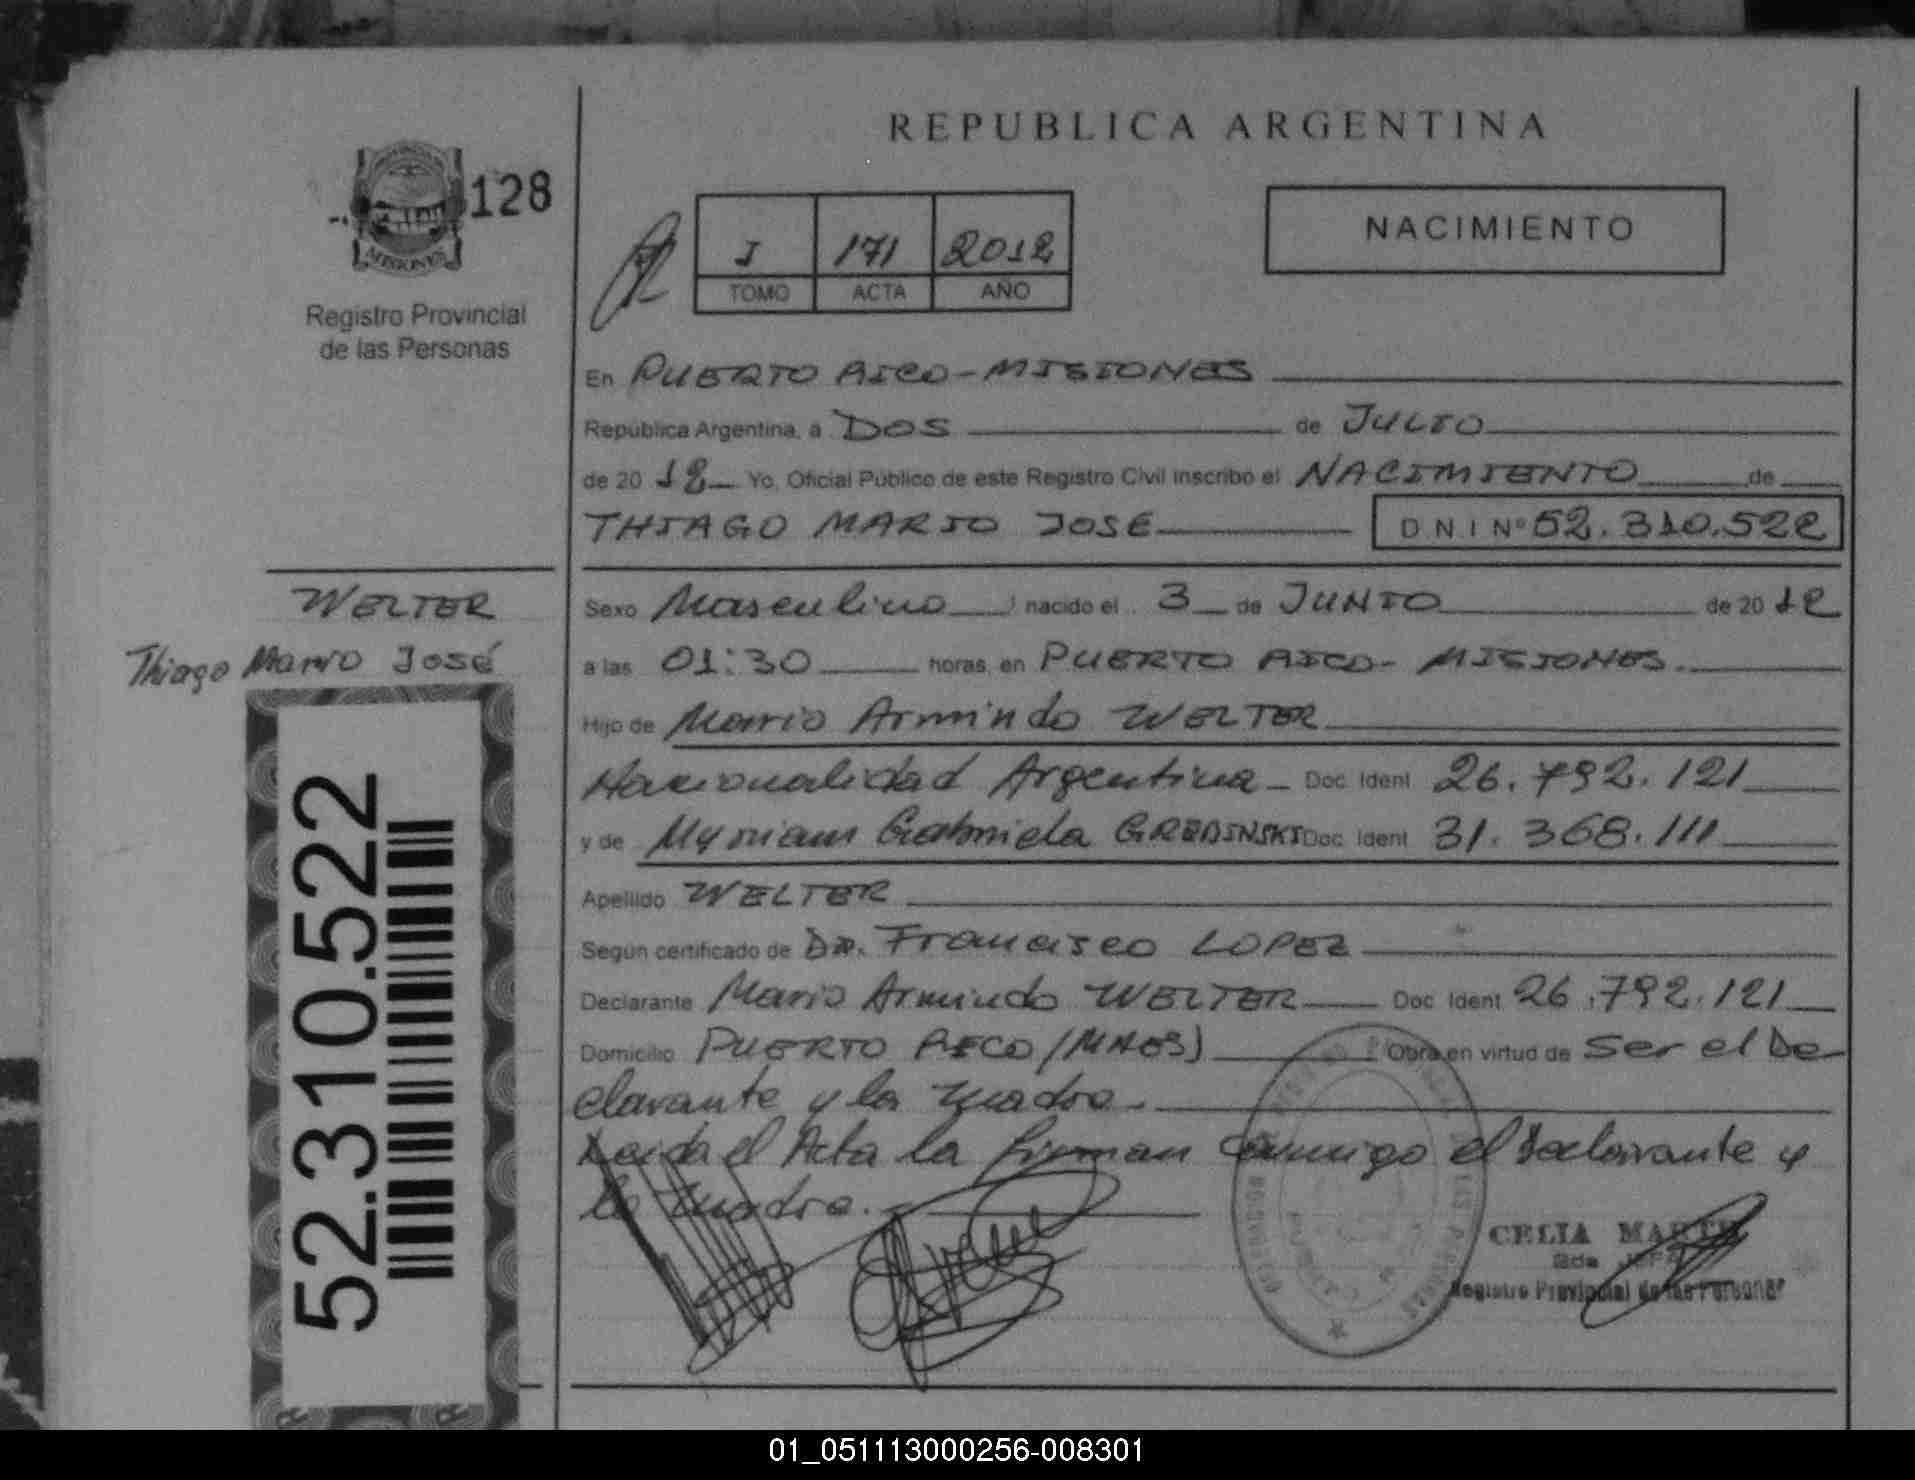 REPUBLICA ARGENTINA
128
MISIONES
Registro Provincial
de las Personas
I 171 2012
TOMO ACTA AÑO
NACIMIENTO
En PUERTO RICO - MISIONES
República Argentina, a DOS de JULIO
de 20 12 Yo, Oficial Público de este Registro Civil inscribo el NACIMIENTO de
THIAGO MARIO JOSE DNI Nº 52.310.522
WELTER
Thiago Mario José
52.310.522
Sexo Masculino nacido el 3 de JUNIO de 20 12
a las 01:30 horas, en PUERTO RICO - MISIONES.
Hijo de Mario Armindo WELTER
Nacionalidad Argentina - Doc. Ident 26.792.121
y de Myriam Gabriela Doc. Ident 31.368.111
Apellido WELTER
Según certificado de Dr. Francisco LOPEZ
Declarante Mario Armindo WELTER Doc. Ident 26.792.121
Domicilio PUERTO RICO/(MNES) Obra en virtud de Ser el De-
clarante y la Madre.
Leida el Acta la firman conmigo el Declarante y
la Madre.
CELIA
2da JEFA
Registro Provincial de las Personas
01_051113000256-008301